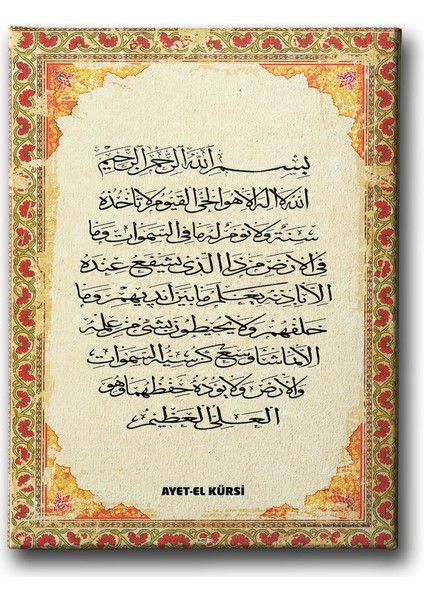 بسم الله الرحمن الرحيم
الله لا اله الا هو الحي القيوم لا تأخذه
سنة ولا نوم له ما في السموات وما
في الارض من ذا الذي يشفع عنده
الا باذنه يعلم ما بين ايديهم وما
خلفهم ولا يحيطون بشئ من علمه
الا بما شاء وسع كرسيه السموات
والارض ولا يؤده حفظهما وهو
العلي العظيم
AYET-EL KÜRSİ